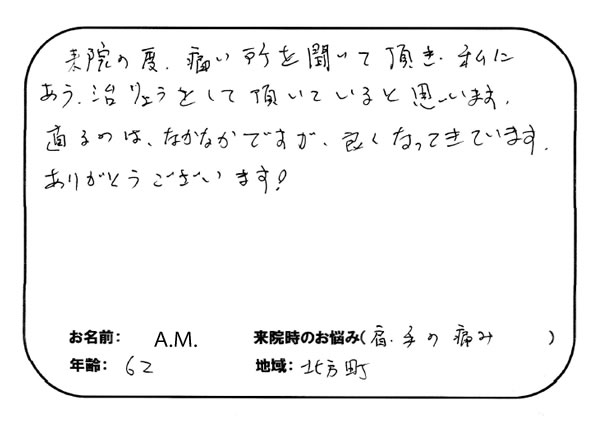 来院の度、痛い所を聞いて頂き、私に
あう、治りょうをして頂いていると思います。
直るのは、なかなかですが、良くなってきています。
ありがとうございます！
お名前： A.M. 来院時のお悩み（肩、手の痛み ）
年齢： 62 地域： 北方町